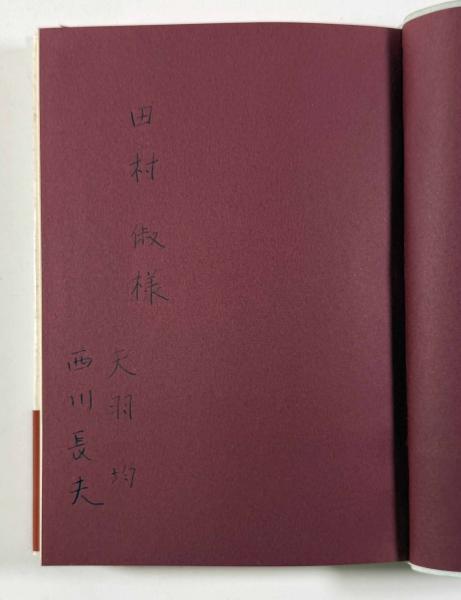 田村 俶様
天羽 均
西川長夫